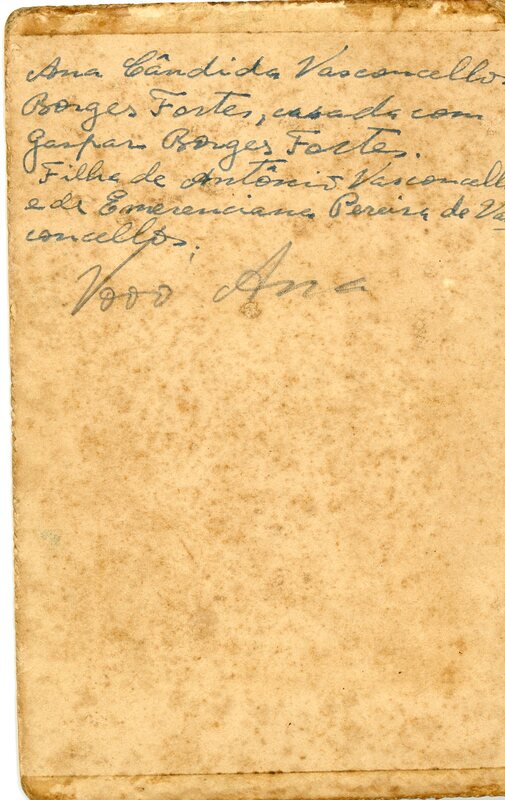 Ana Cândida Vasconcellos
Borges Fortes, casada com
Gaspar Borges Fortes.
Filha de Antônio Vasconcell
e de Emerenciana Pereira de Vas
concellos.
Vovo Ana